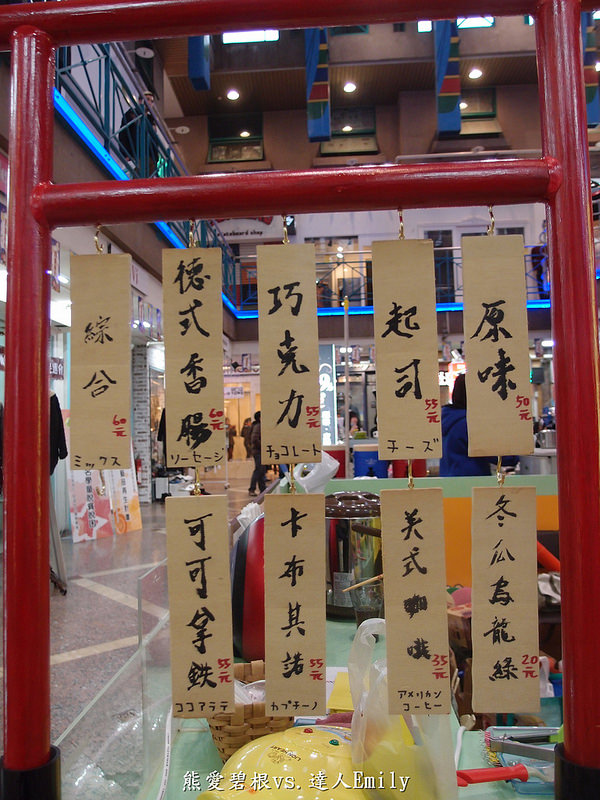 skateboard shop
原味
50元
起司
55元
チーズ
巧克力
55元
チョコレート
德式香腸
60元
ソーセージ
綜合
60元
ミックス
冬瓜烏龍綠
20元
美式咖啡
35元
アメリカン
コーヒー
卡布其諾
55元
カプチーノ
可可拿鉄
55元
ココアラテ
熊愛碧根vs.達人Emily